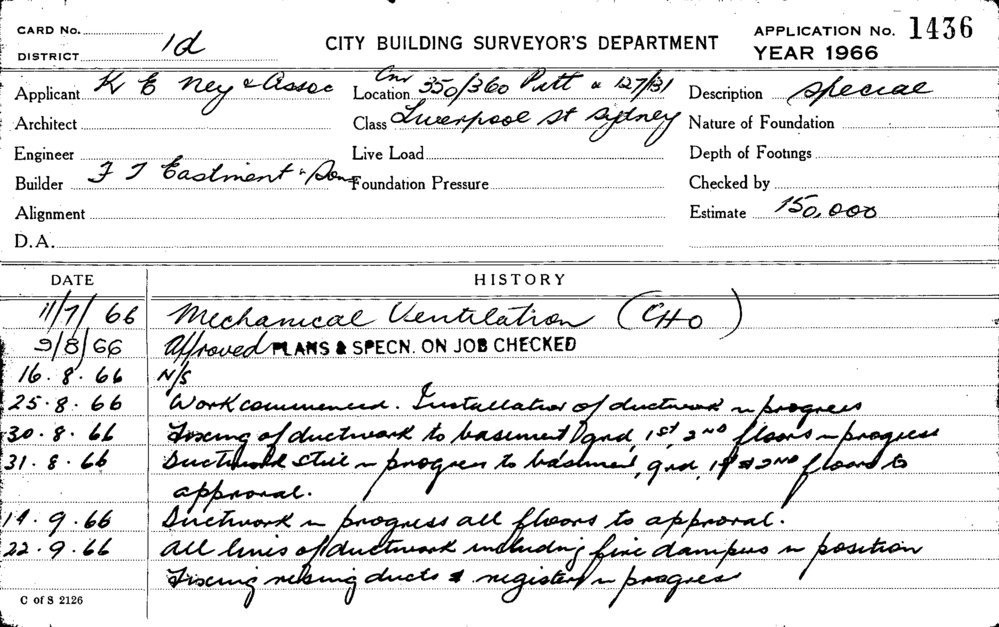 CARD No.
DISTRICT 1d
CITY BUILDING SURVEYOR'S DEPARTMENT
APPLICATION No. 1436
YEAR 1966
Applicant K E Ney & Assoc
Location Cnr 350/360 Pitt & 127/31
Description Special
Architect
Class Liverpool St Sydney
Nature of Foundation
Engineer
Live Load
Depth of Footings
Builder F T Eastment & Sons
Foundation Pressure
Checked by
Alignment
Estimate 150,000
D.A.
DATE HISTORY
11/7/66 Mechanical Ventilation (CHO)
9/8/66 Approved PLANS & SPECN. ON JOB CHECKED
16.8.66 N/S
25.8.66 Work commenced. Installation of ductwork in progress
30.8.66 Fixing of ductwork to basement, grd, 1st, 2nd floors in progress
31.8.66 Ductwork still in progress to basement, grd, 1st & 2nd floors to
approval.
14.9.66 Ductwork in progress all floors to approval.
22.9.66 All lines of ductwork including fire dampers in position
Fixing rising ducts & registers in progress
C of S 2126